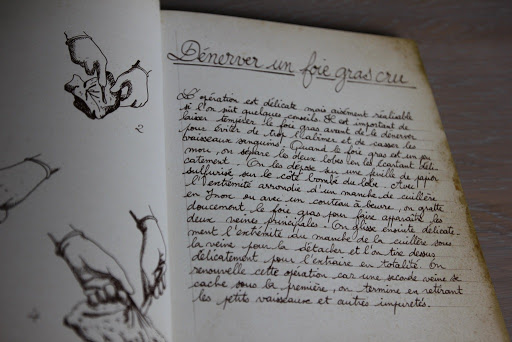 Dénerver un foie gras cru
L'opération est délicate mais aisément réalisable
si l'on suit quelques conseils. Il est important de
laisser tempérer le foie gras avant de le dénerver
pour éviter de trop l'abîmer et de casser les
vaisseaux sanguins. Quand le foie gras est un peu
mou, on sépare les deux lobes en les écartant déli-
catement. On les dépose sur une feuille de papier
sulfurisé sur le côté bombé du lobe. Avec
l'extrémité arrondie d'un manche de cuillère
en Inox ou avec un couteau à beurre, on gratte
doucement le foie gras pour faire apparaître les
deux veines principales. On glisse ensuite délicate-
ment l'extrémité du manche de la cuillère sous
la veine pour la détacher et l'on tire dessus
délicatement pour l'extraire en totalité. On
renouvelle cette opération car une seconde veine se
cache sous la première, on termine en retirant
les petits vaisseaux et autres impuretés.
2
4